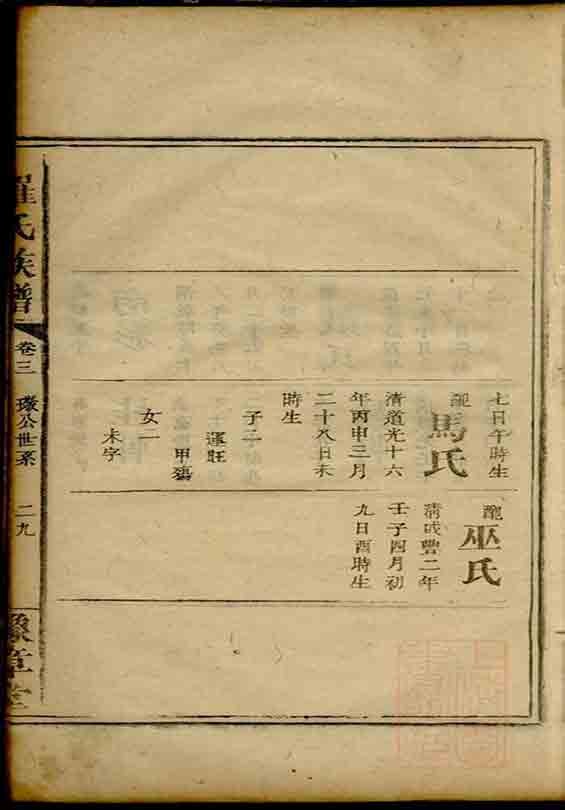 七日午時生
配
馬氏
清道光十六
年丙申三月
二十八日未
時生
子二
運旺
甲
女一
未字
配
巫氏
清咸豐二年
壬子四月初
九日酉時生
羅氏族譜
卷三
公世系
二九
豫章堂